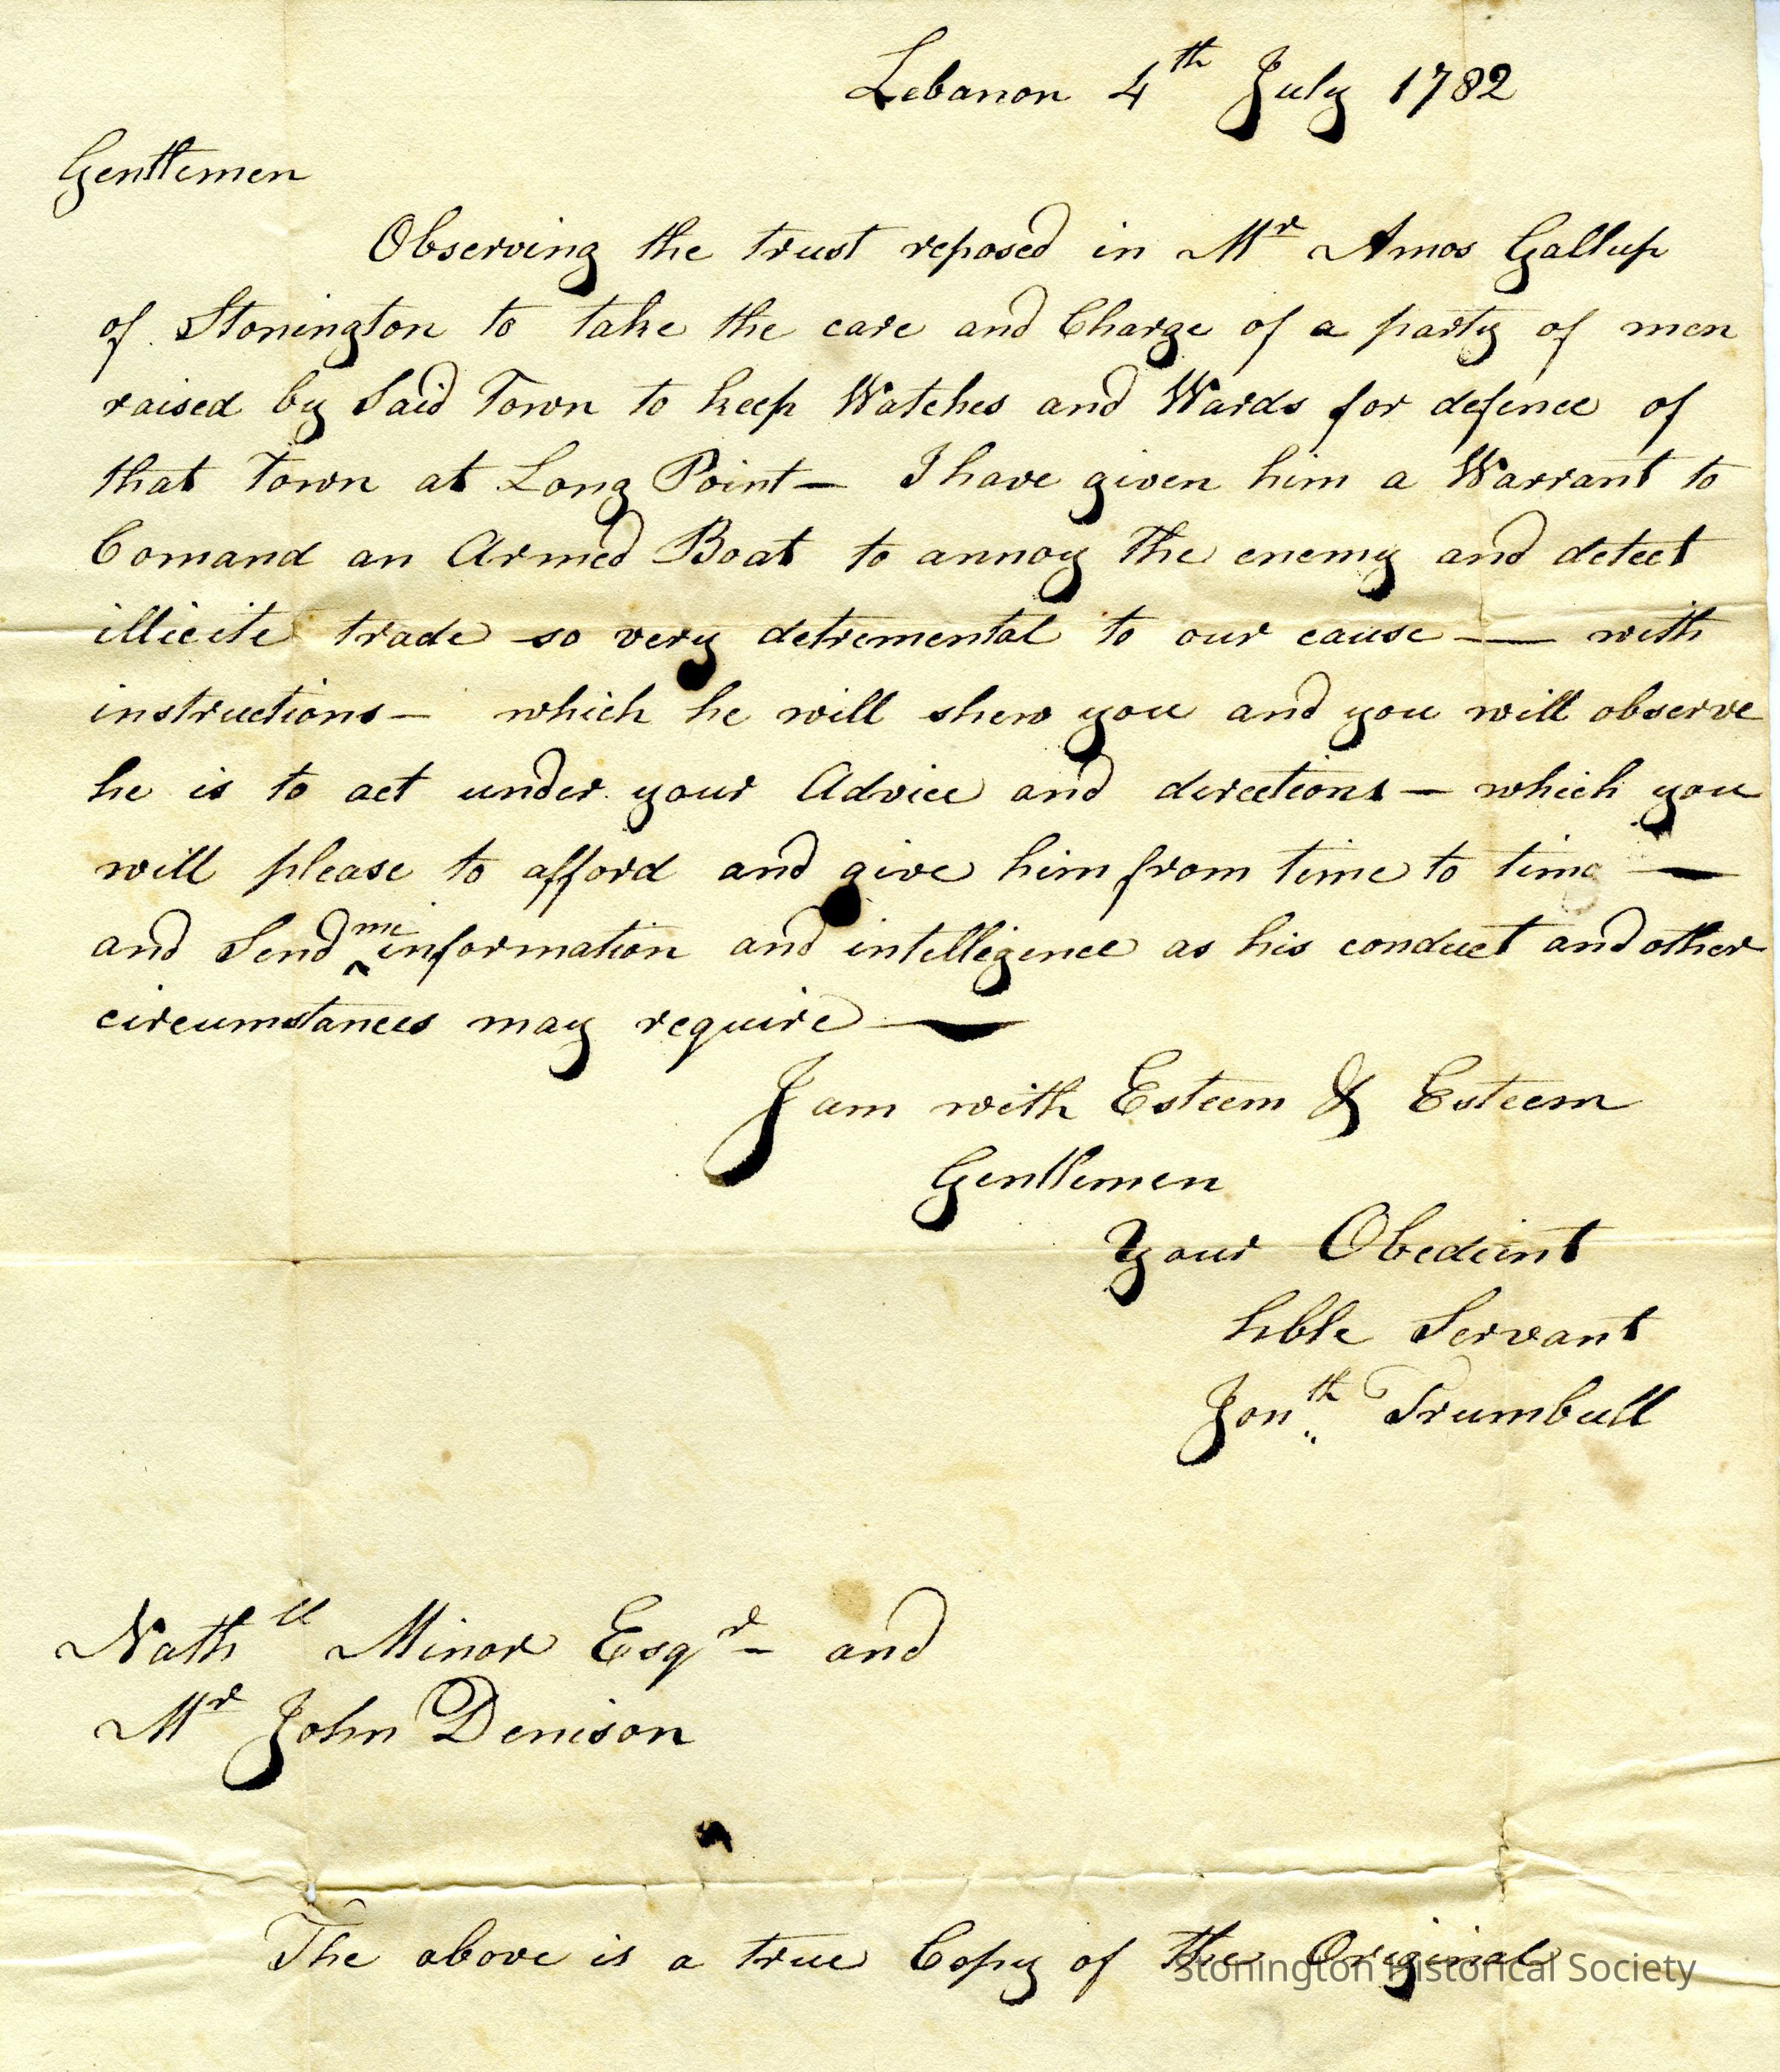 Lebanon 4th July 1782
Gentlemen
Observing the trust reposed in Mr Amos Gallup
of Stonington to take the care and Charge of a party of men
raised by Said Town to keep Watches and Wards for defence of
that Town at Long Point — I have given him a Warrant to
Comand an Armed Boat to annoy the enemy and detect
illicite trade so very detremental to our cause — with
instructions — which he will shew you and you will observe
he is to act under your Advice and directions — which you
will please to afford and give him from time to time —
and Send me information and intelligence as his conduct and other
circumstances may require —
I am with Esteem & Esteem
Gentlemen
Your Obedeint
hble Servant
Jonth Trumbull
Nathll Minor Esqr — and
Mr John Denison
The above is a true Copy of the Original
Stonington Historical Society